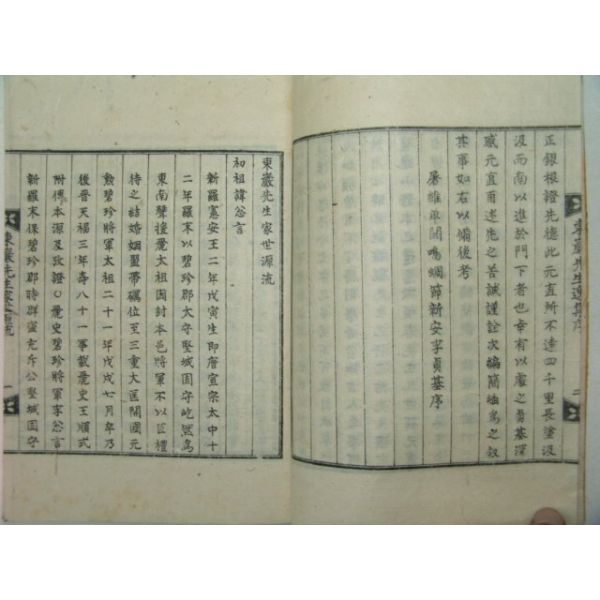 正銀根證先德此元直所不達四千里長塗汲
汲而南以進於門下者也幸有以慮之勇基深
感元直甫述先之苦誠謹詮次編簡峀爲之叙
其事如右以備後考
屠維單閼鳴蜩節新安李貞基序
東巖先生逸集序
二
東巖先生家世源流
初祖諱忩言
新羅憲安王二年戊寅生卽唐宣宗太中十
二年羅末以碧珍郡太守堅城固守屹然爲
東南聲援麗太祖因封本邑將軍不以臣禮
待之結婚姻盟帶礪位至三重大匡開國元
勲碧珍將軍太祖二十一年戊戌七月卒乃
後晉天福三年壽八十一事載麗史王順式
附傳本源及攷證○麗史碧珍將軍李忩言
新羅末保碧珍郡時群盜充斥公堅城固守
東巖先生
一